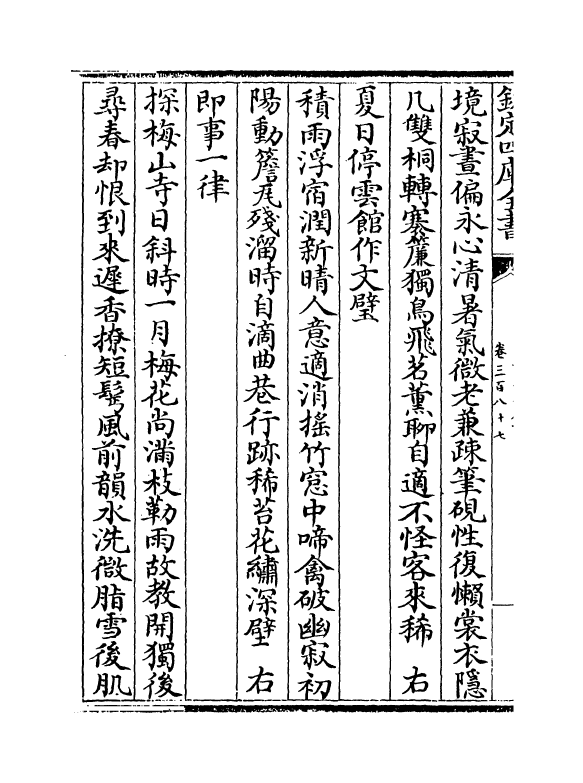 欽定四庫全書
卷三百八十七
境寂晝偏永心清暑氣微老兼疎筆硯性復懶裳衣隱
几雙桐轉褰簾獨鳥飛茗薰聊自適不怪客來稀　右
夏日停雲館作文壁
積雨浮宿潤新晴人意適消搖竹窓中啼禽破幽寂初
陽動簷瓦殘溜時自滴曲巷行跡稀苔花繡深壁　右
即事一律
探梅山寺日斜時一月梅花尚滿枝勒雨故教開獨後
尋春却恨到來遲香撩短鬢風前韻水洗微脂雪後肌